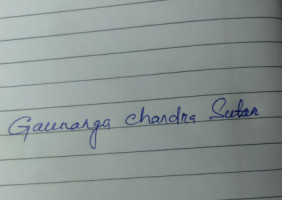 Gaunanga chandra Sutar